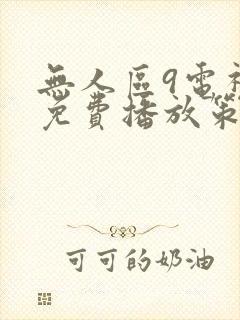 無人區9電視
免費播放策
可可的奶油